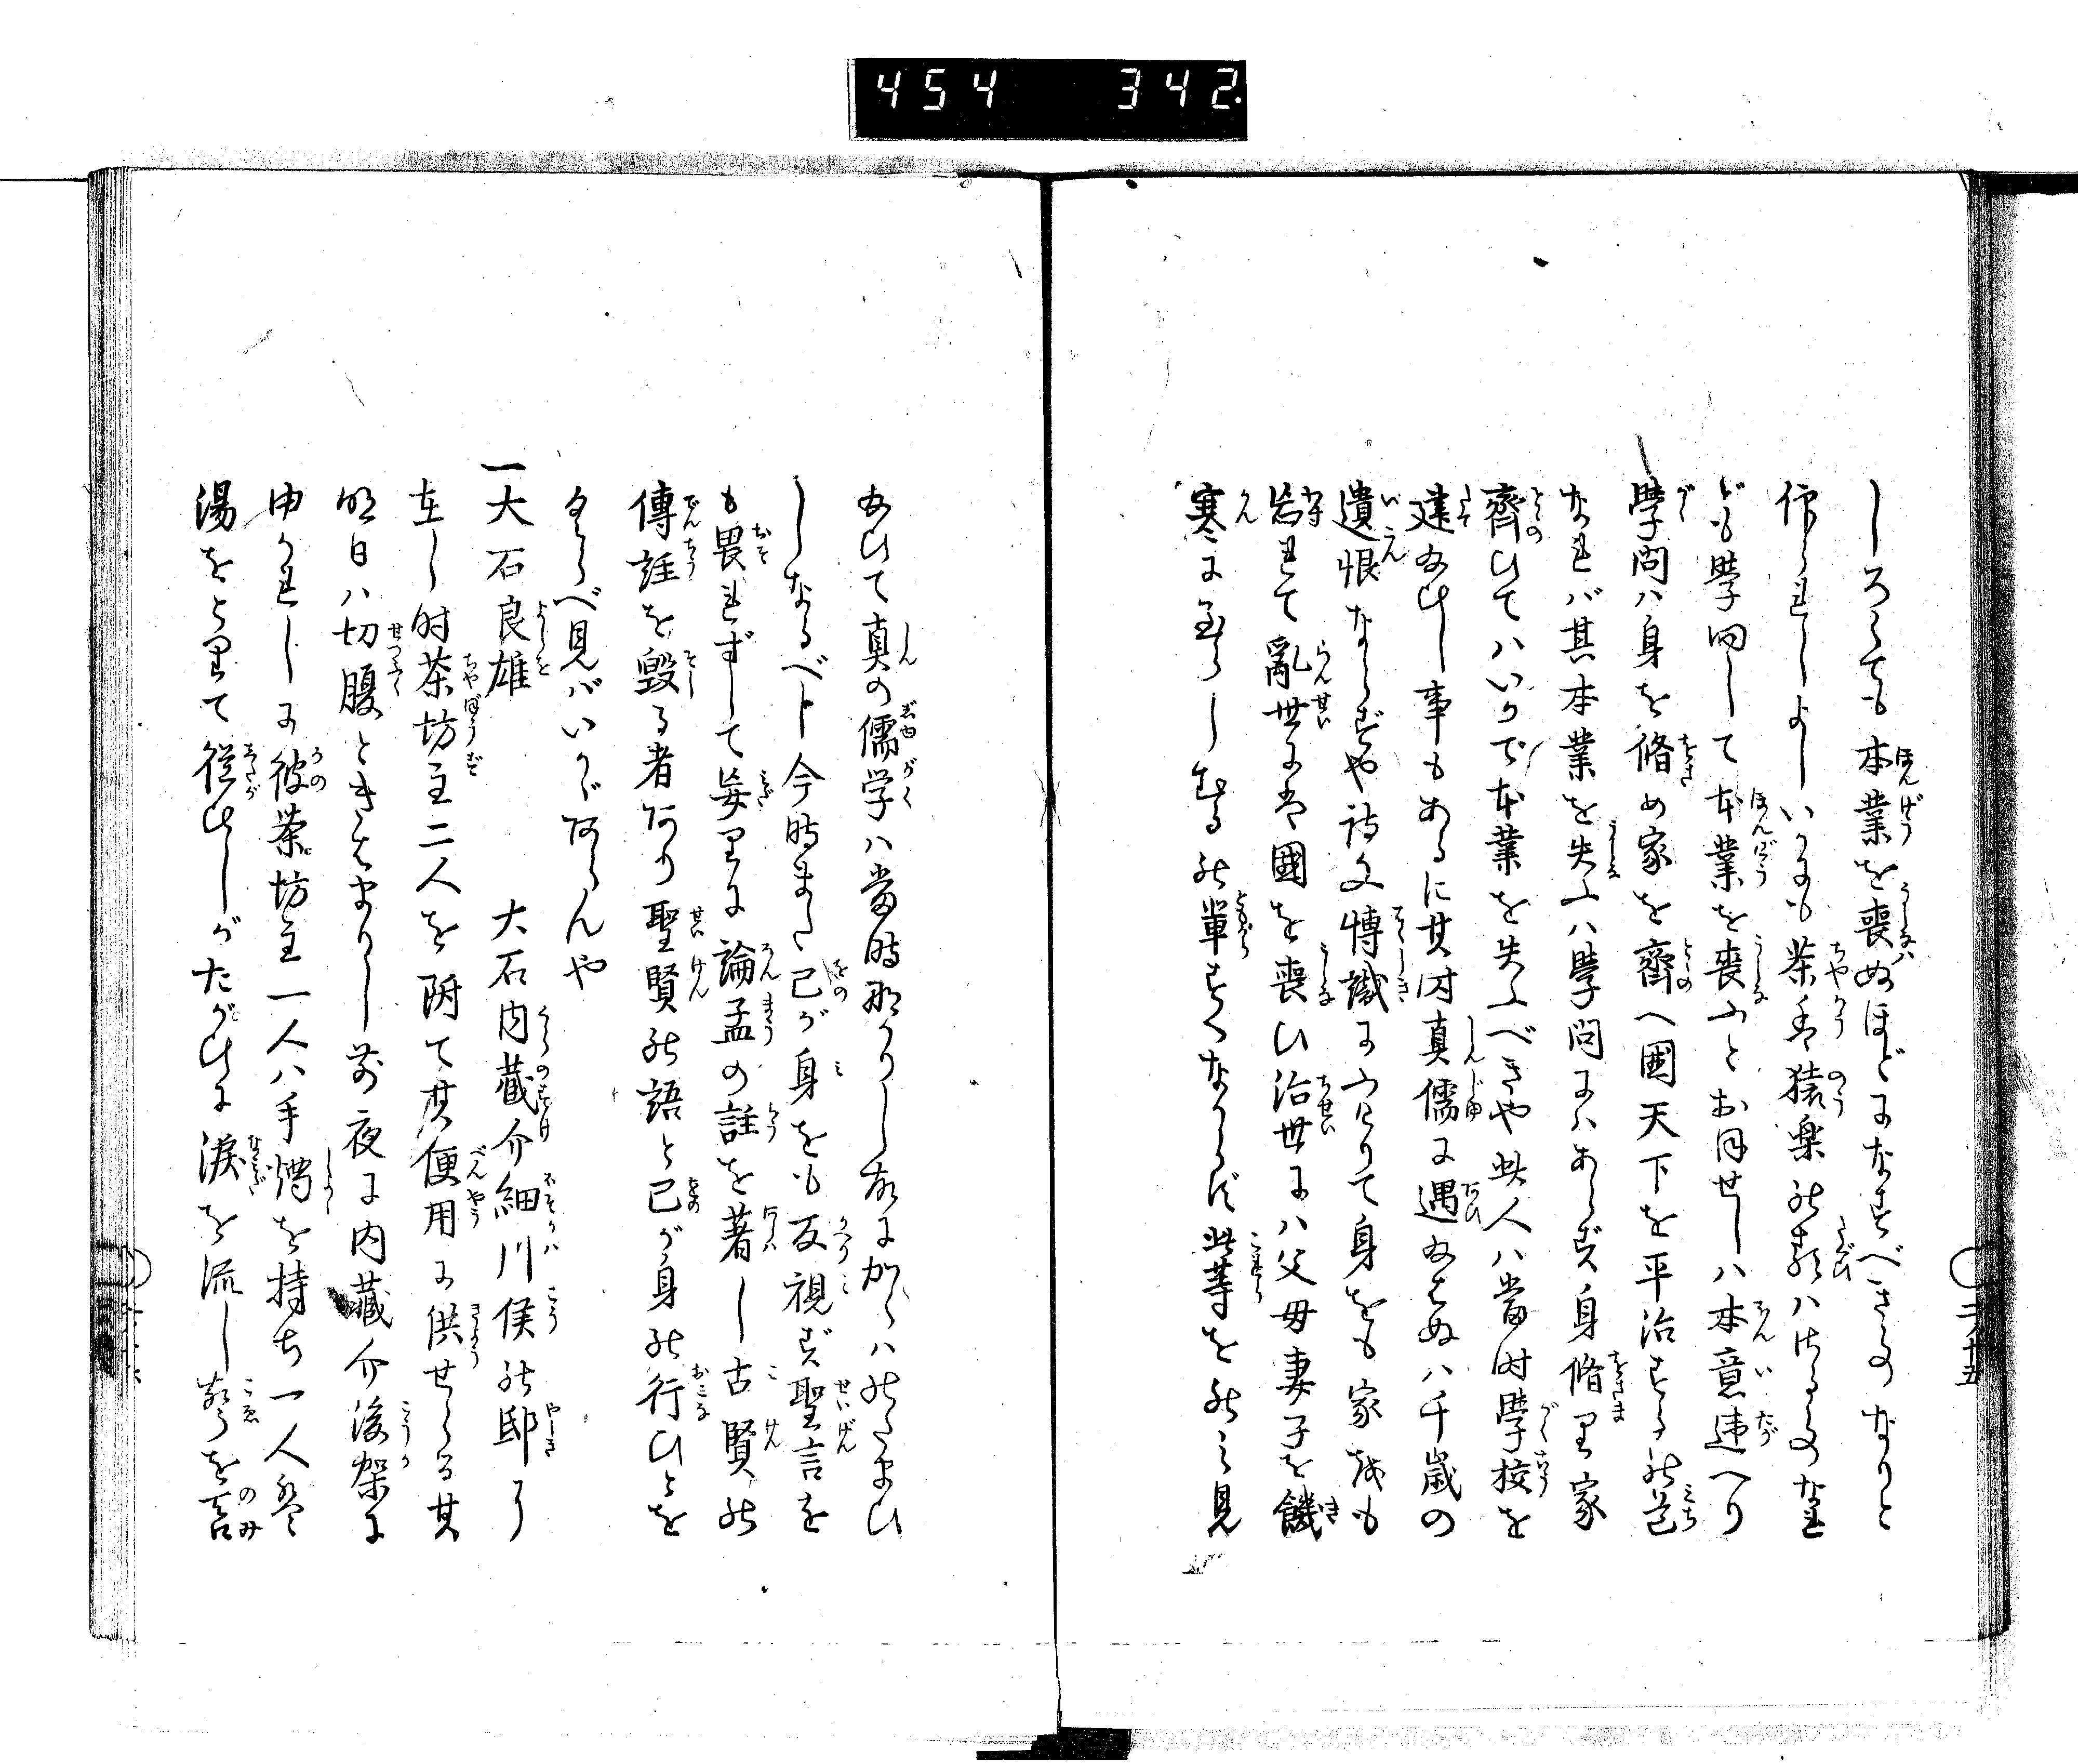 454 342.
しろくても本業を喪ぬほどになすべきものなりと
仰られしよしいかにも茶香猿楽の類ハさるものなれ
ども學问して本業を喪ふとおほせしハ本意違へり
學問ハ身を脩め家を齊へ國天下を平治するの道
なれバ其本業を失ふハ學問にハあらず身脩り家
齊ひてハいかで本業を失ふべきや此人ハ當时學校を
建給ひし事もあるに其时真儒に遇給はぬハ千歳の
遺恨ならずや詩文博識にふけりて身をも家をも
忘れて亂世には國を喪ひ治世にハ父母妻子を饑
寒に至らしむるの輩すくなからず此等をのミ見
給ひて真の儒学ハ當時那かりし故にかくハのたまひ
しなるべし今時また己が身をも反視ず聖言を
も畏れずして妄りに論孟の註を著し古賢の
傳註を毀る者阿り聖賢の語と己が身の行ひとを
くらべ見バいかゞ阿らんや
一大石良雄 大石内藏介細川侯の邸に
在し时茶坊主二人を附て其便用に供せらる其
明日ハ切腹ときはまりし前夜に内藏介後架に
ゆかれしに彼茶坊主一人ハ手燭を持ち一人は
湯をとりて從ひしがたがひに淚を流し聲を吞